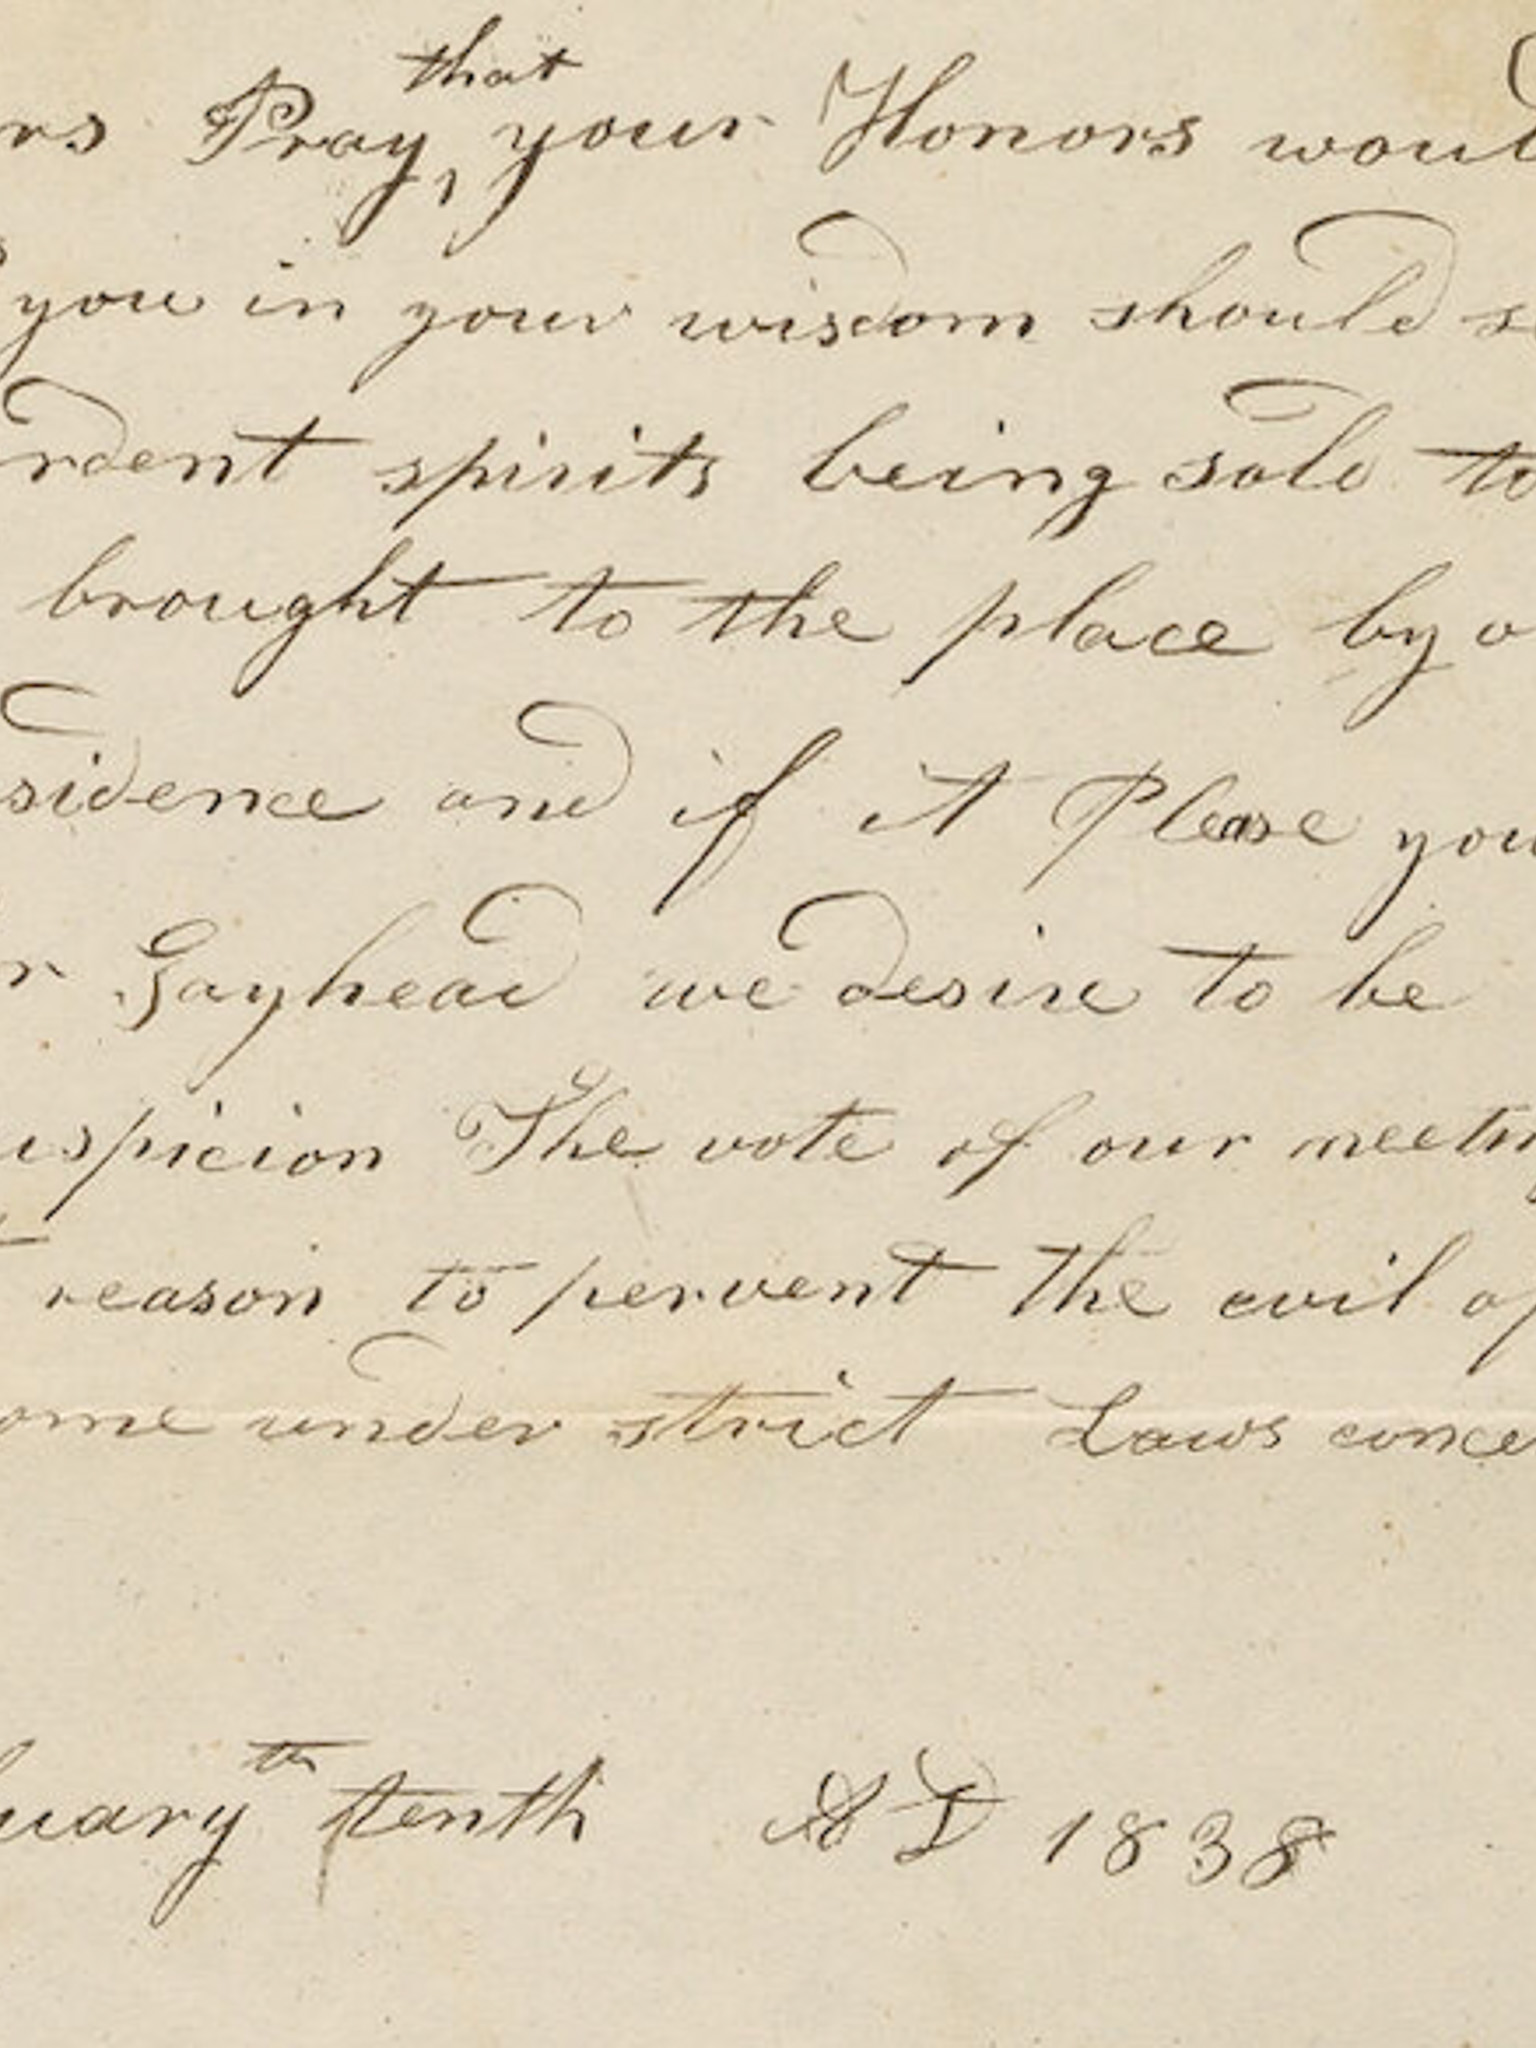 rs Pray, that your Honors would
you in your wisdom should s
rdent spirits being sold to
brought to the place by o
sidence and if it Please you
r Gayhead we desire to be
uspicion The vote of our meetin
reason to pervent the evil of
ome under strict Laws conce
uary th tenth AD 1838